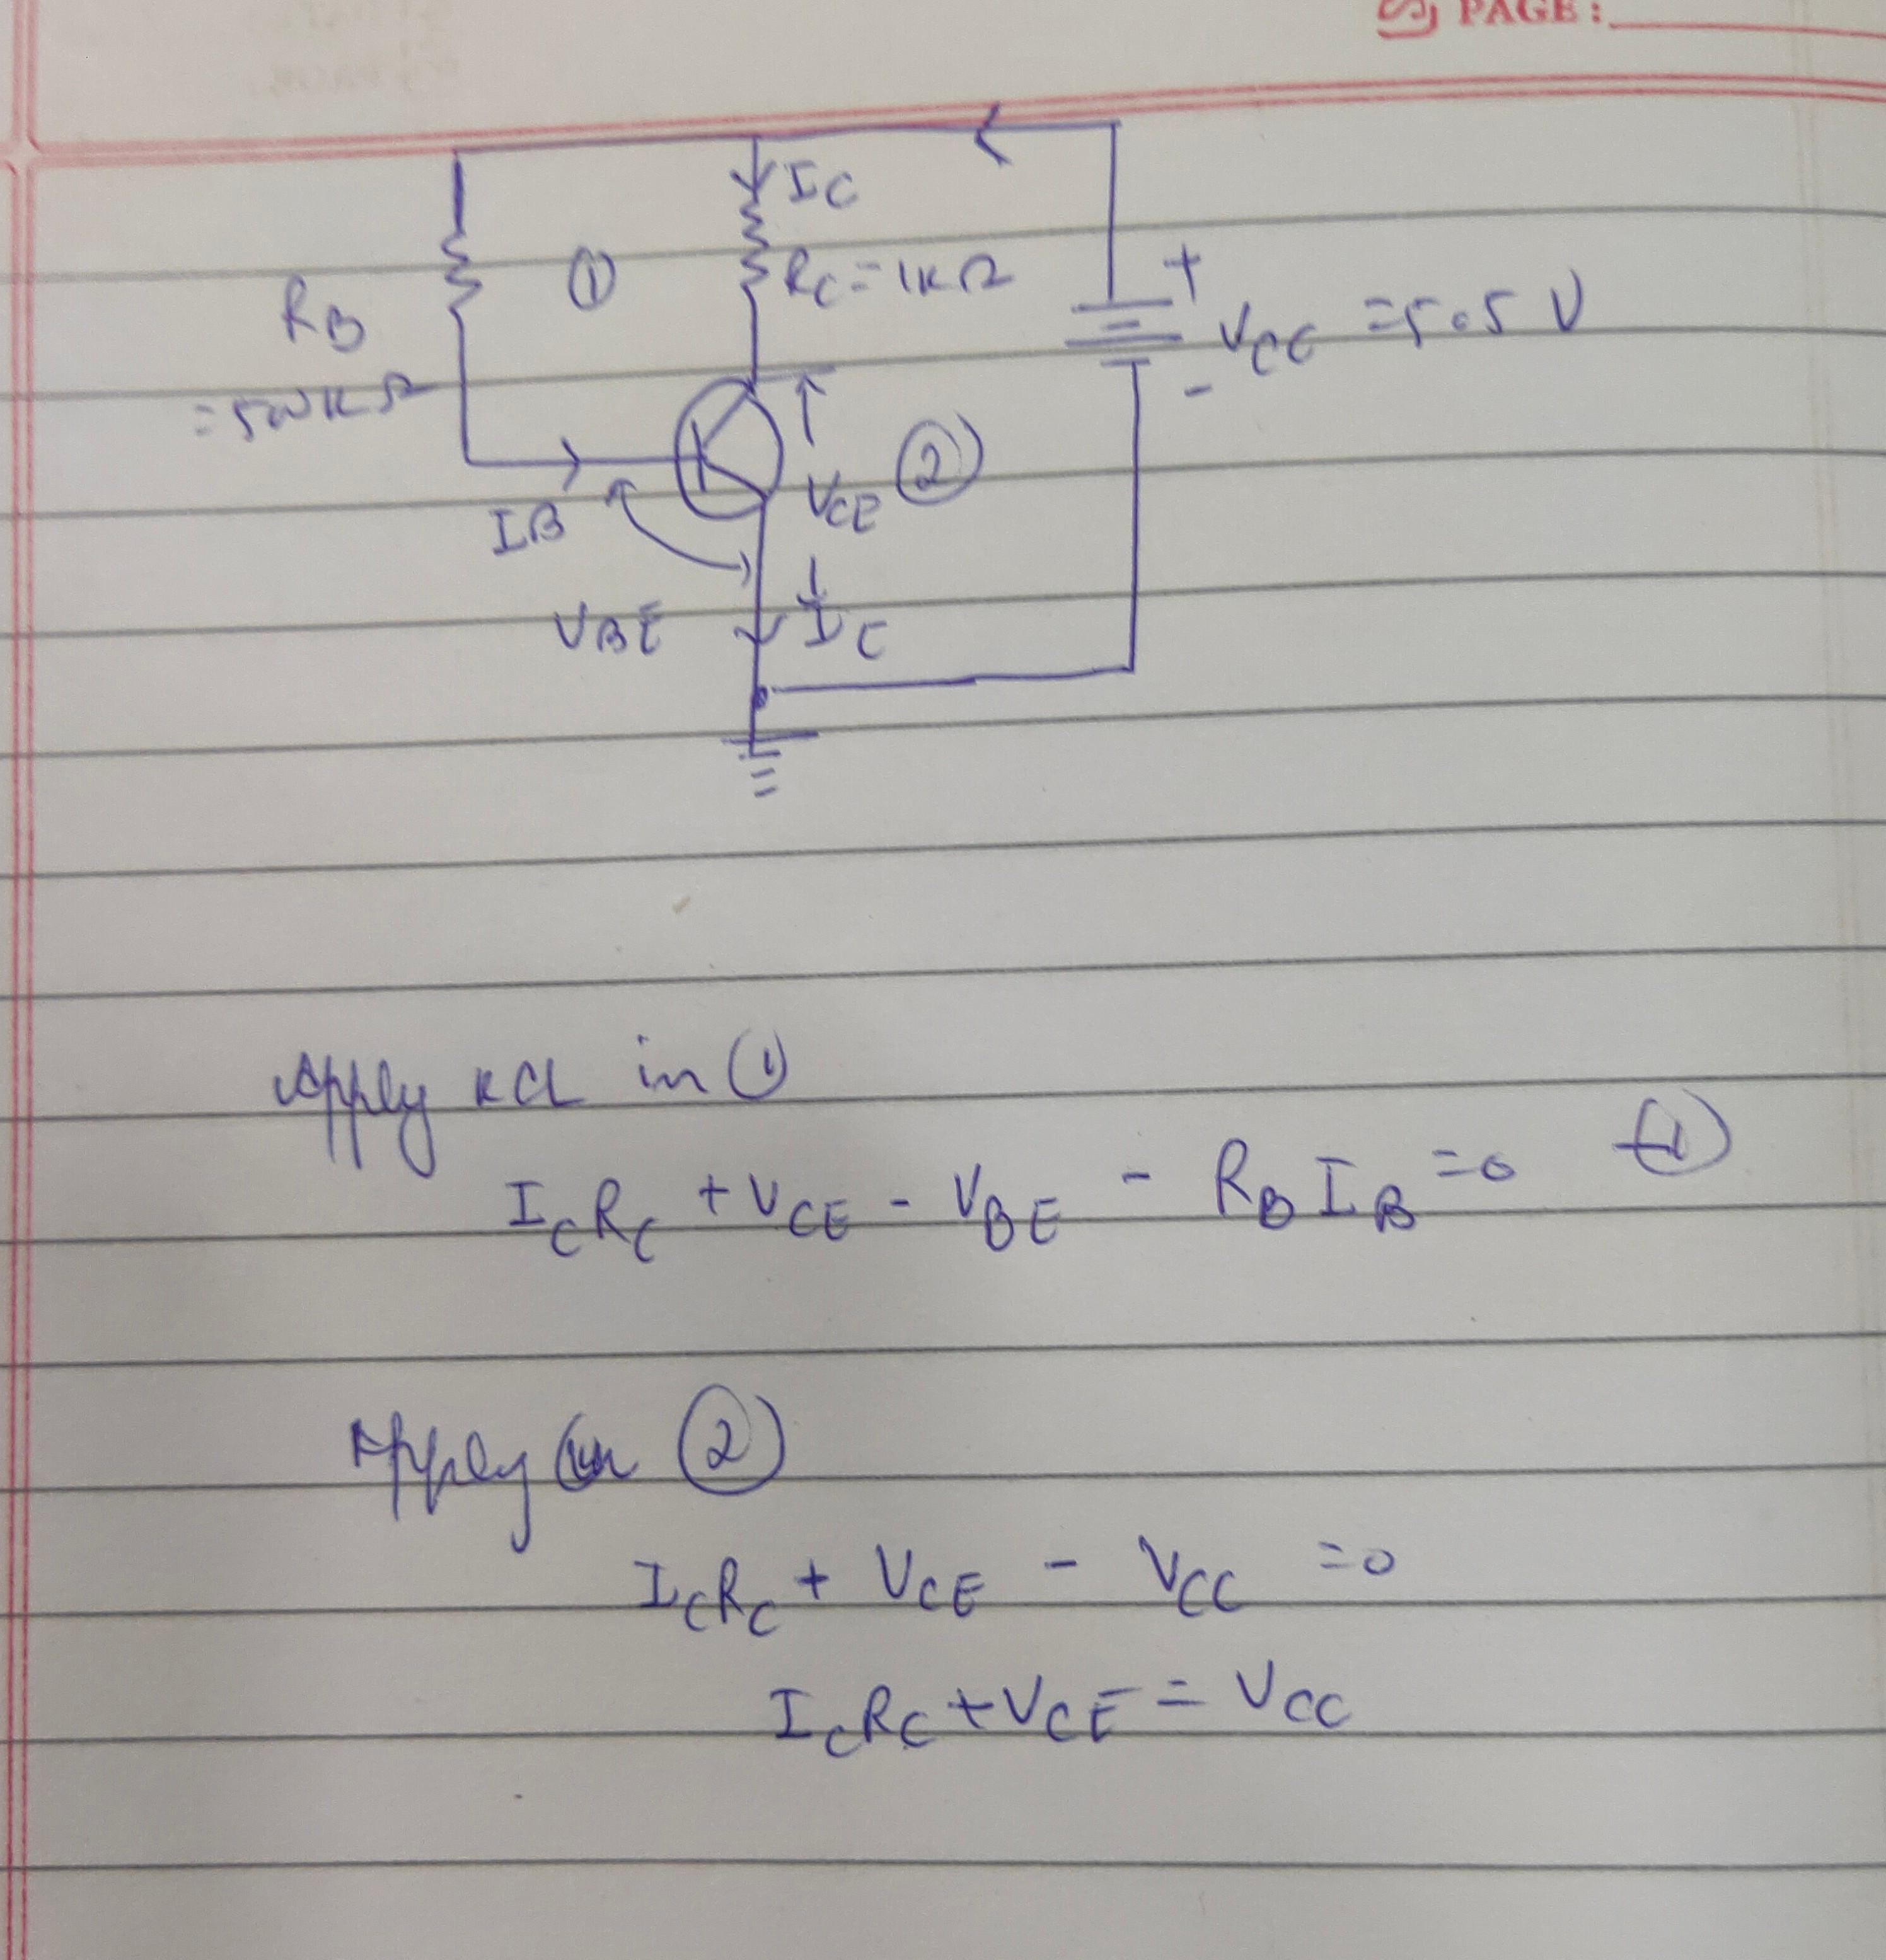 PAGE:
I_C
①
R_C = 1KΩ
R_B
= 500KΩ
+
V_CC = 5.5 V
-
V_CE ②
I_B
V_BE
Apply KCL in ①
I_C R_C + V_CE - V_BE - R_B I_B = 0 -①
Apply in ②
I_C R_C + V_CE - V_CC = 0
I_C R_C + V_CE = V_CC